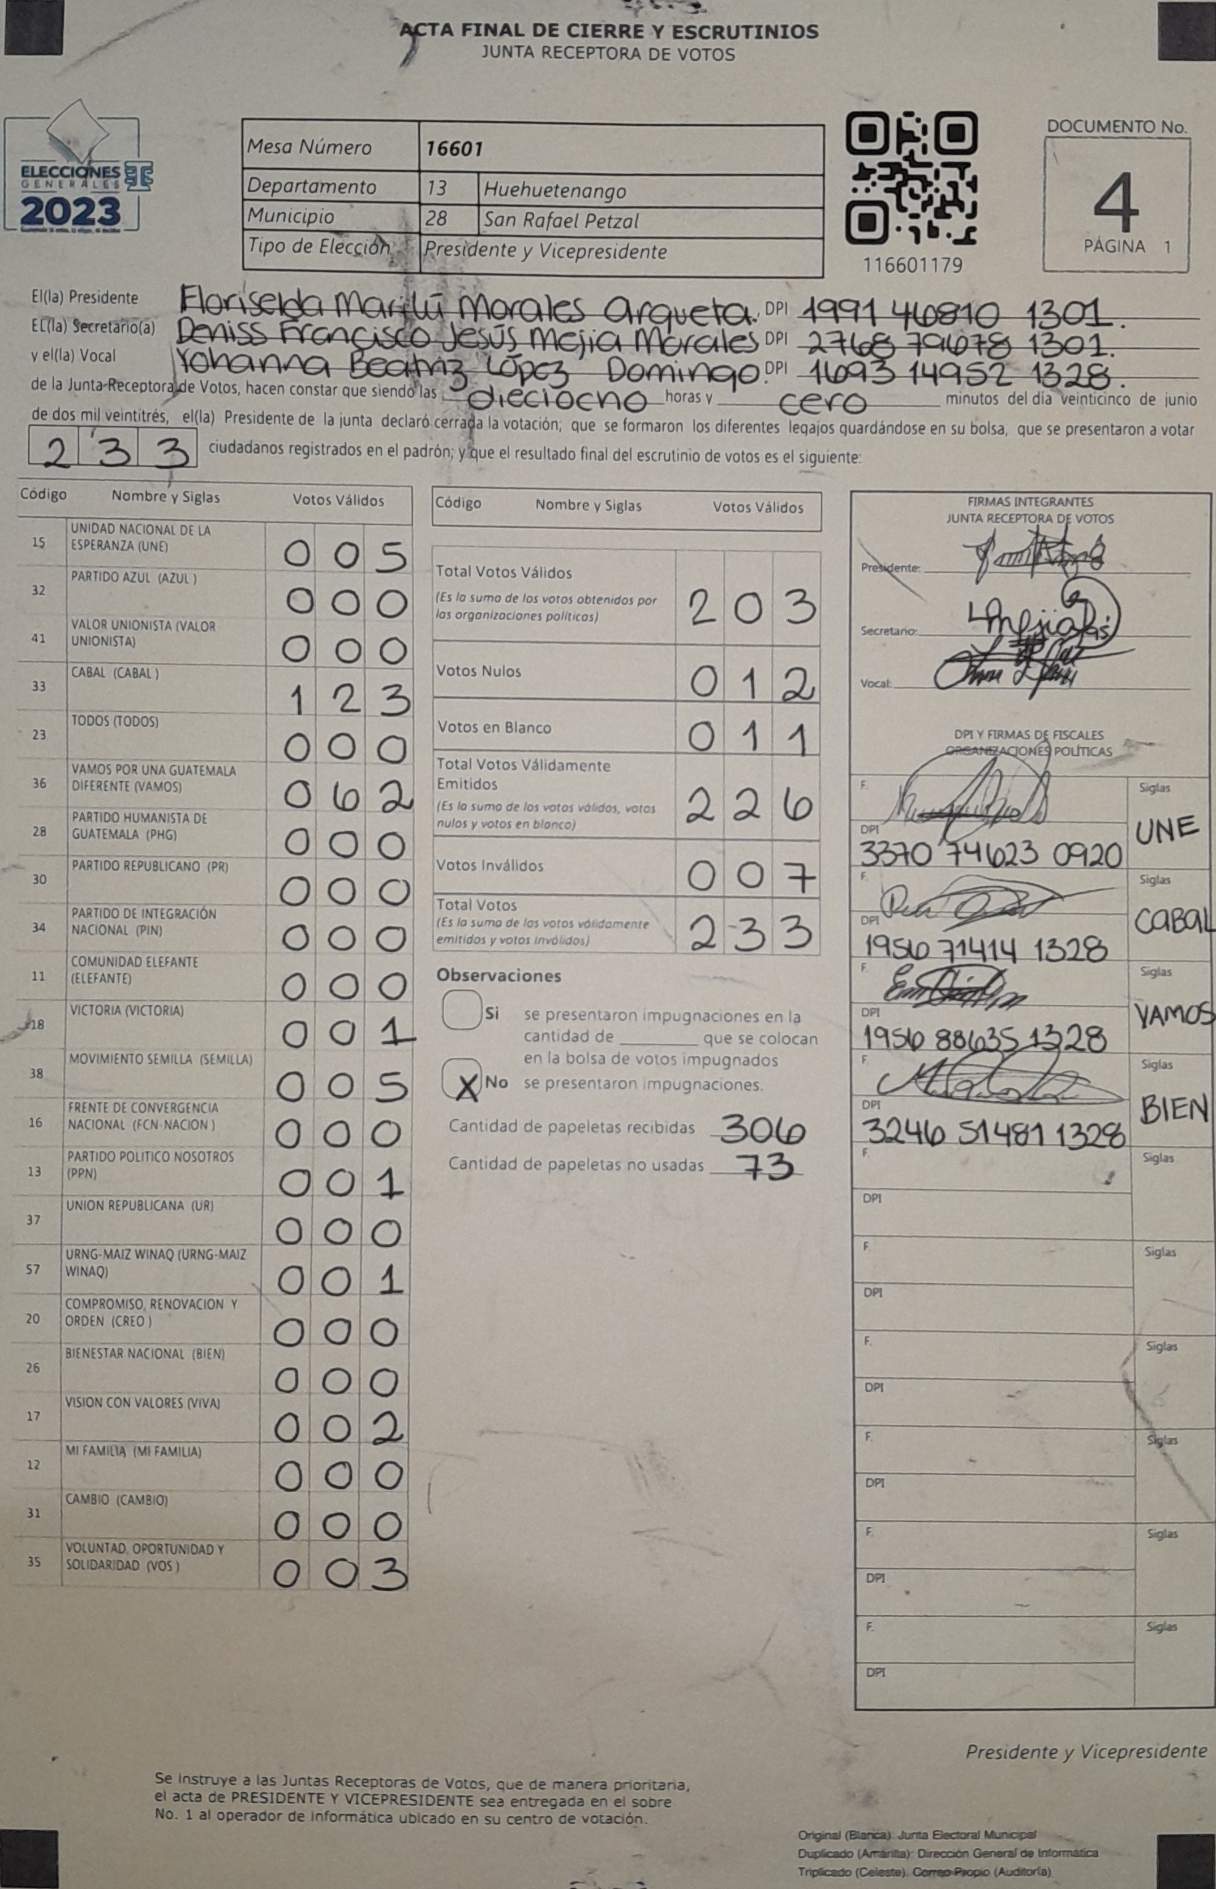 ACTA FINAL DE CIERRE Y ESCRUTINIOS
JUNTA RECEPTORA DE VOTOS
ELECCIONES
GENERALES
2023
Mesa Número 16601
Departamento 13 Huehuetenango
Municipio 28 San Rafael Petzal
Tipo de Elección Presidente y Vicepresidente
116601179
DOCUMENTO No.
4
PÁGINA 1
El(la) Presidente Floriselda Marilú Morales Argueta. DPI 1991 46810 1301.
EL(la) Secretario(a) Deniss Francisco Jesús Mejia Morales DPI 2768 79678 1301.
y el(la) Vocal Yohanna Beatriz López Domingo. DPI 1693 14952 1328.
de la Junta Receptora de Votos, hacen constar que siendo las dieciocho horas y cero minutos del día veinticinco de junio
de dos mil veintitrés, el(la) Presidente de la junta declaró cerrada la votación; que se formaron los diferentes legajos guardándose en su bolsa, que se presentaron a votar
233 ciudadanos registrados en el padrón; y que el resultado final del escrutinio de votos es el siguiente:
Código Nombre y Siglas Votos Válidos
15 UNIDAD NACIONAL DE LA ESPERANZA (UNE) 0 0 5
32 PARTIDO AZUL (AZUL ) 0 0 0
41 VALOR UNIONISTA (VALOR UNIONISTA) 0 0 0
33 CABAL (CABAL ) 1 2 3
23 TODOS (TODOS) 0 0 0
36 VAMOS POR UNA GUATEMALA DIFERENTE (VAMOS) 0 6 2
28 PARTIDO HUMANISTA DE GUATEMALA (PHG) 0 0 0
30 PARTIDO REPUBLICANO (PR) 0 0 0
34 PARTIDO DE INTEGRACIÓN NACIONAL (PIN) 0 0 0
11 COMUNIDAD ELEFANTE (ELEFANTE) 0 0 0
18 VICTORIA (VICTORIA) 0 0 1
38 MOVIMIENTO SEMILLA (SEMILLA) 0 0 5
16 FRENTE DE CONVERGENCIA NACIONAL (FCN-NACION ) 0 0 0
13 PARTIDO POLITICO NOSOTROS (PPN) 0 0 1
37 UNION REPUBLICANA (UR) 0 0 0
57 URNG-MAIZ WINAQ (URNG-MAIZ WINAQ) 0 0 1
20 COMPROMISO, RENOVACION Y ORDEN (CREO ) 0 0 0
26 BIENESTAR NACIONAL (BIEN) 0 0 0
17 VISION CON VALORES (VIVA) 0 0 2
12 MI FAMILIA (MI FAMILIA) 0 0 0
31 CAMBIO (CAMBIO) 0 0 0
35 VOLUNTAD, OPORTUNIDAD Y SOLIDARIDAD (VOS ) 0 0 3
Código Nombre y Siglas Votos Válidos
Total Votos Válidos
(Es la suma de los votos obtenidos por
las organizaciones políticas) 2 0 3
Votos Nulos 0 1 2
Votos en Blanco 0 1 1
Total Votos Válidamente
Emitidos
(Es la suma de los votos válidos, votos
nulos y votos en blanco) 2 2 6
Votos Inválidos 0 0 7
Total Votos
(Es la suma de los votos válidamente
emitidos y votos inválidos) 2 3 3
Observaciones
Si se presentaron impugnaciones en la
cantidad de ________ que se colocan
en la bolsa de votos impugnados
X No se presentaron impugnaciones.
Cantidad de papeletas recibidas 306
Cantidad de papeletas no usadas 73
FIRMAS INTEGRANTES
JUNTA RECEPTORA DE VOTOS
Presidente:
Secretario:
Vocal:
DPI Y FIRMAS DE FISCALES
ORGANIZACIONES POLÍTICAS
F. Siglas
DPI UNE
3370 74623 0920
F. Siglas
DPI CABAL
1956 71414 1328
F. Siglas
DPI VAMOS
1956 88635 1328
F. Siglas
DPI BIEN
3246 51481 1328
F. Siglas
DPI
F. Siglas
DPI
F. Siglas
DPI
F. Siglas
DPI
F. Siglas
DPI
F. Siglas
DPI
Presidente y Vicepresidente
Se instruye a las Juntas Receptoras de Votos, que de manera prioritaria,
el acta de PRESIDENTE Y VICEPRESIDENTE sea entregada en el sobre
No. 1 al operador de informática ubicado en su centro de votación.
Original (Blanca): Junta Electoral Municipal
Duplicado (Amarilla): Dirección General de Informática
Triplicado (Celeste): Correo Propio (Auditoría)